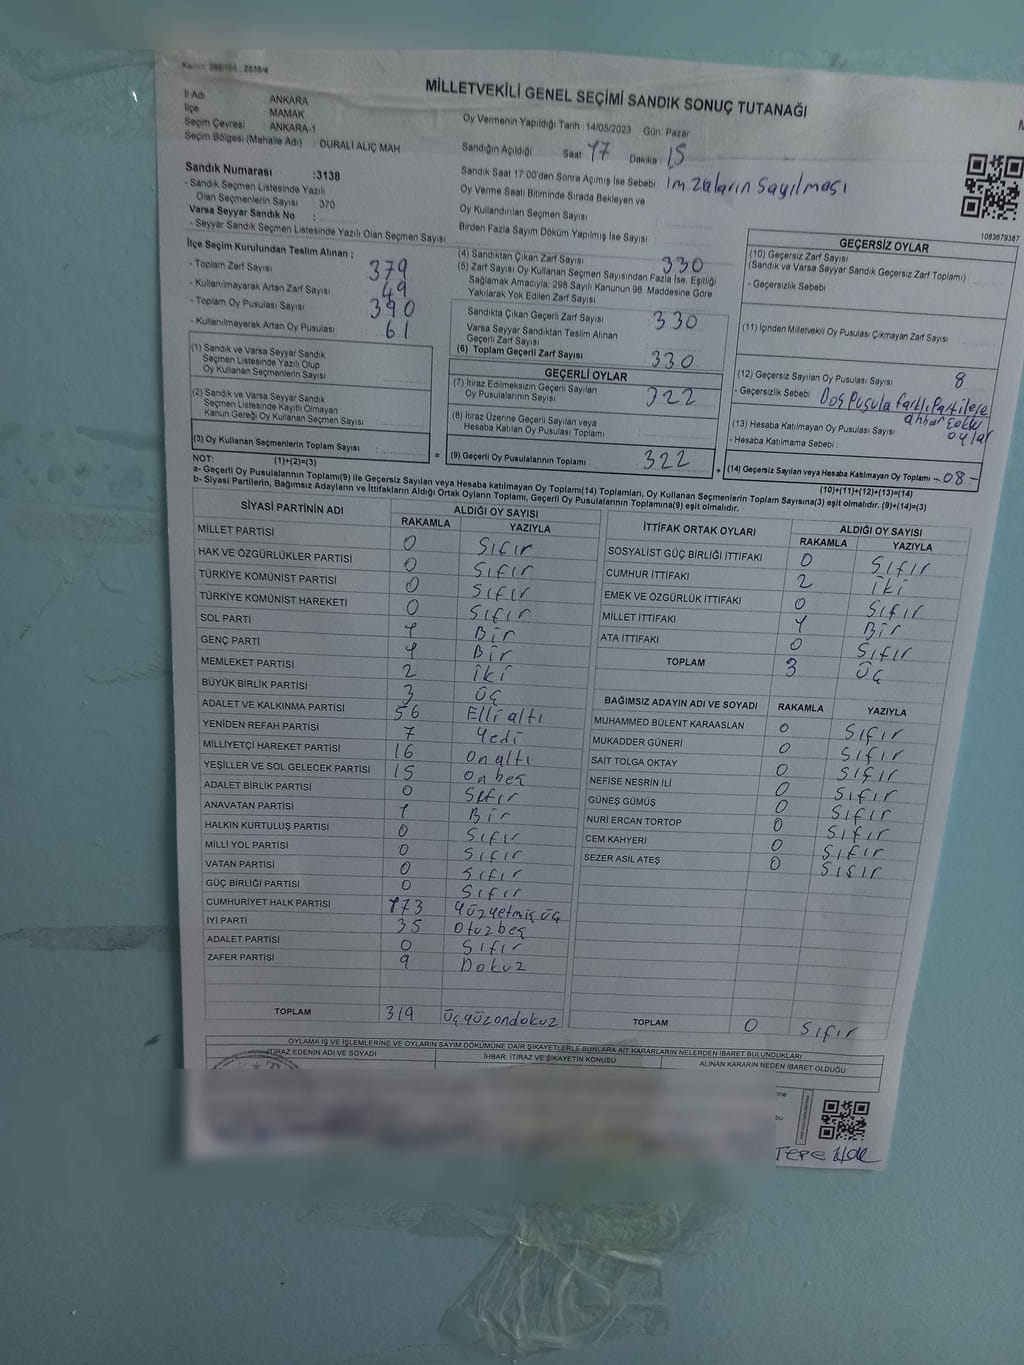 MİLLETVEKİLİ GENEL SEÇİMİ SANDIK SONUÇ TUTANAĞI
İl Adı : ANKARA
İlçe : MAMAK
Seçim Çevresi : ANKARA-1
Seçim Bölgesi (Mahalle Adı) : DURALİ ALIÇ MAH
Oy Vermenin Yapıldığı Tarih : 14/05/2023 Gün: Pazar
Sandığın Açıldığı Saat 17 Dakika 15
Sandık Saat 17:00'den Sonra Açımış İse Sebebi : imzaların sayılması
Oy Verme Saati Bitiminde Sırada Bekleyen ve
Oy Kullandırılan Seçmen Sayısı
Birden Fazla Sayım Döküm Yapılmış İse Sayısı
Sandık Numarası : 3138
- Sandık Seçmen Listesinde Yazılı
Olan Seçmenlerin Sayısı : 370
Varsa Seyyar Sandık No :
- Seyyar Sandık Seçmen Listesinde Yazılı Olan Seçmen Sayısı :
1083679387
İlçe Seçim Kurulundan Teslim Alınan ;
- Toplam Zarf Sayısı 379
- Kullanılmayarak Artan Zarf Sayısı 49
- Toplam Oy Pusulası Sayısı 390
- Kullanılmayarak Artan Oy Pusulası 61
(1) Sandık ve Varsa Seyyar Sandık
Seçmen Listesinde Yazılı Olup
Oy Kullanan Seçmenlerin Sayısı
(2) Sandık ve Varsa Seyyar Sandık
Seçmen Listesinde Kayıtlı Olmayan
Kanun Gereği Oy Kullanan Seçmen Sayısı
(3) Oy Kullanan Seçmenlerin Toplam Sayısı
(4) Sandıktan Çıkan Zarf Sayısı 330
(5) Zarf Sayısı Oy Kullanan Seçmen Sayısından Fazla İse, Eşitliği
Sağlamak Amacıyla; 298 Sayılı Kanunun 98. Maddesine Göre
Yakılarak Yok Edilen Zarf Sayısı
Sandıkta Çıkan Geçerli Zarf Sayısı 330
Varsa Seyyar Sandıktan Teslim Alınan
Geçerli Zarf Sayısı
(6) Toplam Geçerli Zarf Sayısı 330
GEÇERLİ OYLAR
(7) İtiraz Edilmeksizin Geçerli Sayılan
Oy Pusulalarının Sayısı 322
(8) İtiraz Üzerine Geçerli Sayılan veya
Hesaba Katılan Oy Pusulası Toplamı
= (9) Geçerli Oy Pusulalarının Toplamı 322
GEÇERSİZ OYLAR
(10) Geçersiz Zarf Sayısı
(Sandık ve Varsa Seyyar Sandık Geçersiz Zarf Toplamı)
- Geçersizlik Sebebi :
(11) İçinden Milletvekili Oy Pusulası Çıkmayan Zarf Sayısı
(12) Geçersiz Sayılan Oy Pusulası Sayısı 8
- Geçersizlik Sebebi : Boş Pusula farklı Partilere
(13) Hesaba Katılmayan Oy Pusulası Sayısı
oylar
- Hesaba Katılmama Sebebi :
+ (14) Geçersiz Sayılan veya Hesaba Katılmayan Oy Toplamı -08-
NOT: (1)+(2)=(3)
(10)+(11)+(12)+(13)=(14)
a- Geçerli Oy Pusulalarının Toplamı(9) ile Geçersiz Sayılan veya Hesaba katılmayan Oy Toplamı(14) Toplamları, Oy Kullanan Seçmenlerin Toplam Sayısına(3) eşit olmalıdır. (9)+(14)=(3)
b- Siyasi Partilerin, Bağımsız Adayların ve İttifakların Aldığı Ortak Oyların Toplamı, Geçerli Oy Pusulalarının Toplamına(9) eşit olmalıdır.
SİYASİ PARTİNİN ADI ALDIĞI OY SAYISI
RAKAMLA YAZIYLA
MİLLET PARTİSİ 0 Sıfır
HAK VE ÖZGÜRLÜKLER PARTİSİ 0 Sıfır
TÜRKİYE KOMÜNİST PARTİSİ 0 Sıfır
TÜRKİYE KOMÜNİST HAREKETİ 0 Sıfır
SOL PARTİ 1 Bir
GENÇ PARTİ 1 Bir
MEMLEKET PARTİSİ 2 iki
BÜYÜK BİRLİK PARTİSİ 3 üç
ADALET VE KALKINMA PARTİSİ 56 Elli altı
YENİDEN REFAH PARTİSİ 7 Yedi
MİLLİYETÇİ HAREKET PARTİSİ 16 on altı
YEŞİLLER VE SOL GELECEK PARTİSİ 15 on beş
ADALET BİRLİK PARTİSİ 0 Sıfır
ANAVATAN PARTİSİ 1 Bir
HALKIN KURTULUŞ PARTİSİ 0 Sıfır
MİLLİ YOL PARTİSİ 0 Sıfır
VATAN PARTİSİ 0 Sıfır
GÜÇ BİRLİĞİ PARTİSİ 0 Sıfır
CUMHURİYET HALK PARTİSİ 173 Yüzyetmiş üç
İYİ PARTİ 35 Otuzbeş
ADALET PARTİSİ 0 Sıfır
ZAFER PARTİSİ 9 Dokuz
TOPLAM 319 üçyüzondokuz
İTTİFAK ORTAK OYLARI ALDIĞI OY SAYISI
RAKAMLA YAZIYLA
SOSYALİST GÜÇ BİRLİĞİ İTTİFAKI 0 Sıfır
CUMHUR İTTİFAKI 2 iki
EMEK VE ÖZGÜRLÜK İTTİFAKI 0 Sıfır
MİLLET İTTİFAKI 1 Bir
ATA İTTİFAKI 0 Sıfır
TOPLAM 3 üç
BAĞIMSIZ ADAYIN ADI VE SOYADI RAKAMLA YAZIYLA
MUHAMMED BÜLENT KARAASLAN 0 Sıfır
MUKADDER GÜNERİ 0 Sıfır
SAİT TOLGA OKTAY 0 Sıfır
NEFİSE NESRİN İLİ 0 Sıfır
GÜNEŞ GÜMÜŞ 0 Sıfır
NURİ ERCAN TORTOP 0 Sıfır
CEM KAHYERİ 0 Sıfır
SEZER ASİL ATEŞ 0 Sıfır
TOPLAM 0 Sıfır
OYLAMA İŞ VE İŞLEMLERİNE VE OYLARIN SAYIM DÖKÜMÜNE DAİR ŞİKAYETLERLE BUNLARA AİT KARARLARIN NELERDEN İBARET BULUNDUKLARI
İTİRAZ EDENİN ADI VE SOYADI İHBAR, İTİRAZ VE ŞİKAYETİN KONUSU ALINAN KARARIN NEDEN İBARET OLDUĞU